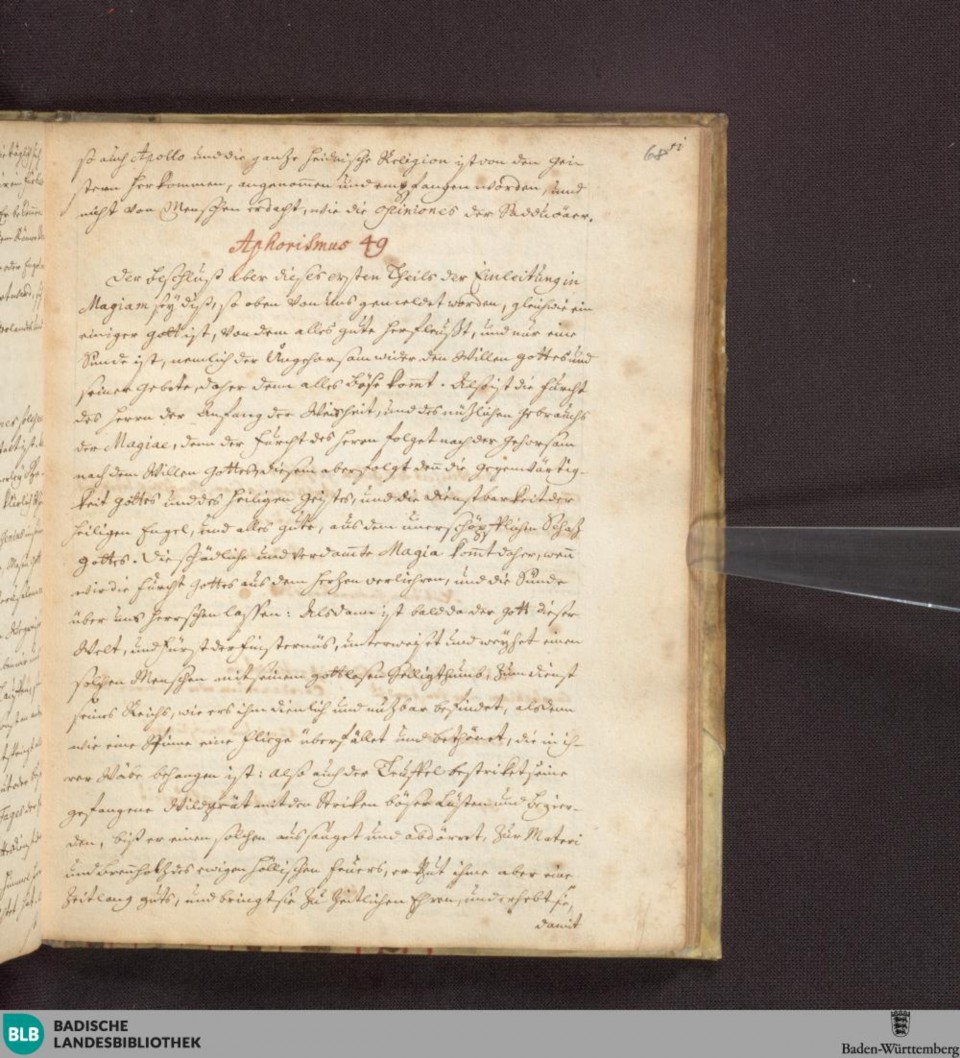 68
so auch Apollo und die ganze heidnische Religion ist von den Gei-
stern herkommen, angenommen und empfangen worden, und
nicht von Menschen erdacht, wie die opiniones der Sadducäer.
Aphorismus 49
Der Beschluß aber dieses ersten Theils der Einleitung in
Magiam sey diß, so oben von uns gemeldet worden, gleichwie ein
einiger Gott ist, von dem alles gute herfleußt, und nur eine
Sünde ist, nemlich der Ungehorsam wider den Willen Gottes und
seiner Gebote, daher denn alles böse komt. Also ist die Furcht
des Herrn der Anfang der Weisheit, und des nüzlichen Gebrauchs
der Magiae, denn der Furcht des Herrn folget nach der Gehorsam
nach dem Willen Gottes, diesem aber folgt denn die Gegenwärtig-
keit Gottes und des heiligen Geistes, und die Dienstbarkeit der
heiligen Engel, und alles gute, aus dem unerschöpflichen Schatz
Gottes. Die schädliche und verdamte Magia komt daher, wenn
wir die Furcht Gottes aus dem Herzen verliehren, und die Sünde
über uns herrschen lassen: Alsdann ist bald da der Gott dieser
Welt, und Fürst der Finsternüs, unterweiset und weyhet einen
solchen Menschen mit seinem gottlosen Heiligthumb, zum dienst
seines Reichs, wie ers ihm dienlich und nutzbar befindet, alsdenn
wie eine Spinne eine Fliege überfället und bethöret, die in ih-
rer Wäbe behangen ist: Also auch der Teuffel bestriket seine
gefangene Wildprät mit den Striken böser Lüsten und Begier-
den, biß er einen solchen aussauget und ausdörret, zur Materi
und Brennholtz des ewigen höllischen Feuers, er thut ihme aber eine
Zeitlang guts, und bringt sie zu Zeitlichen Ehren, und erhebt sie,
damit
BLB BADISCHE
LANDESBIBLIOTHEK
Baden-Württemberg